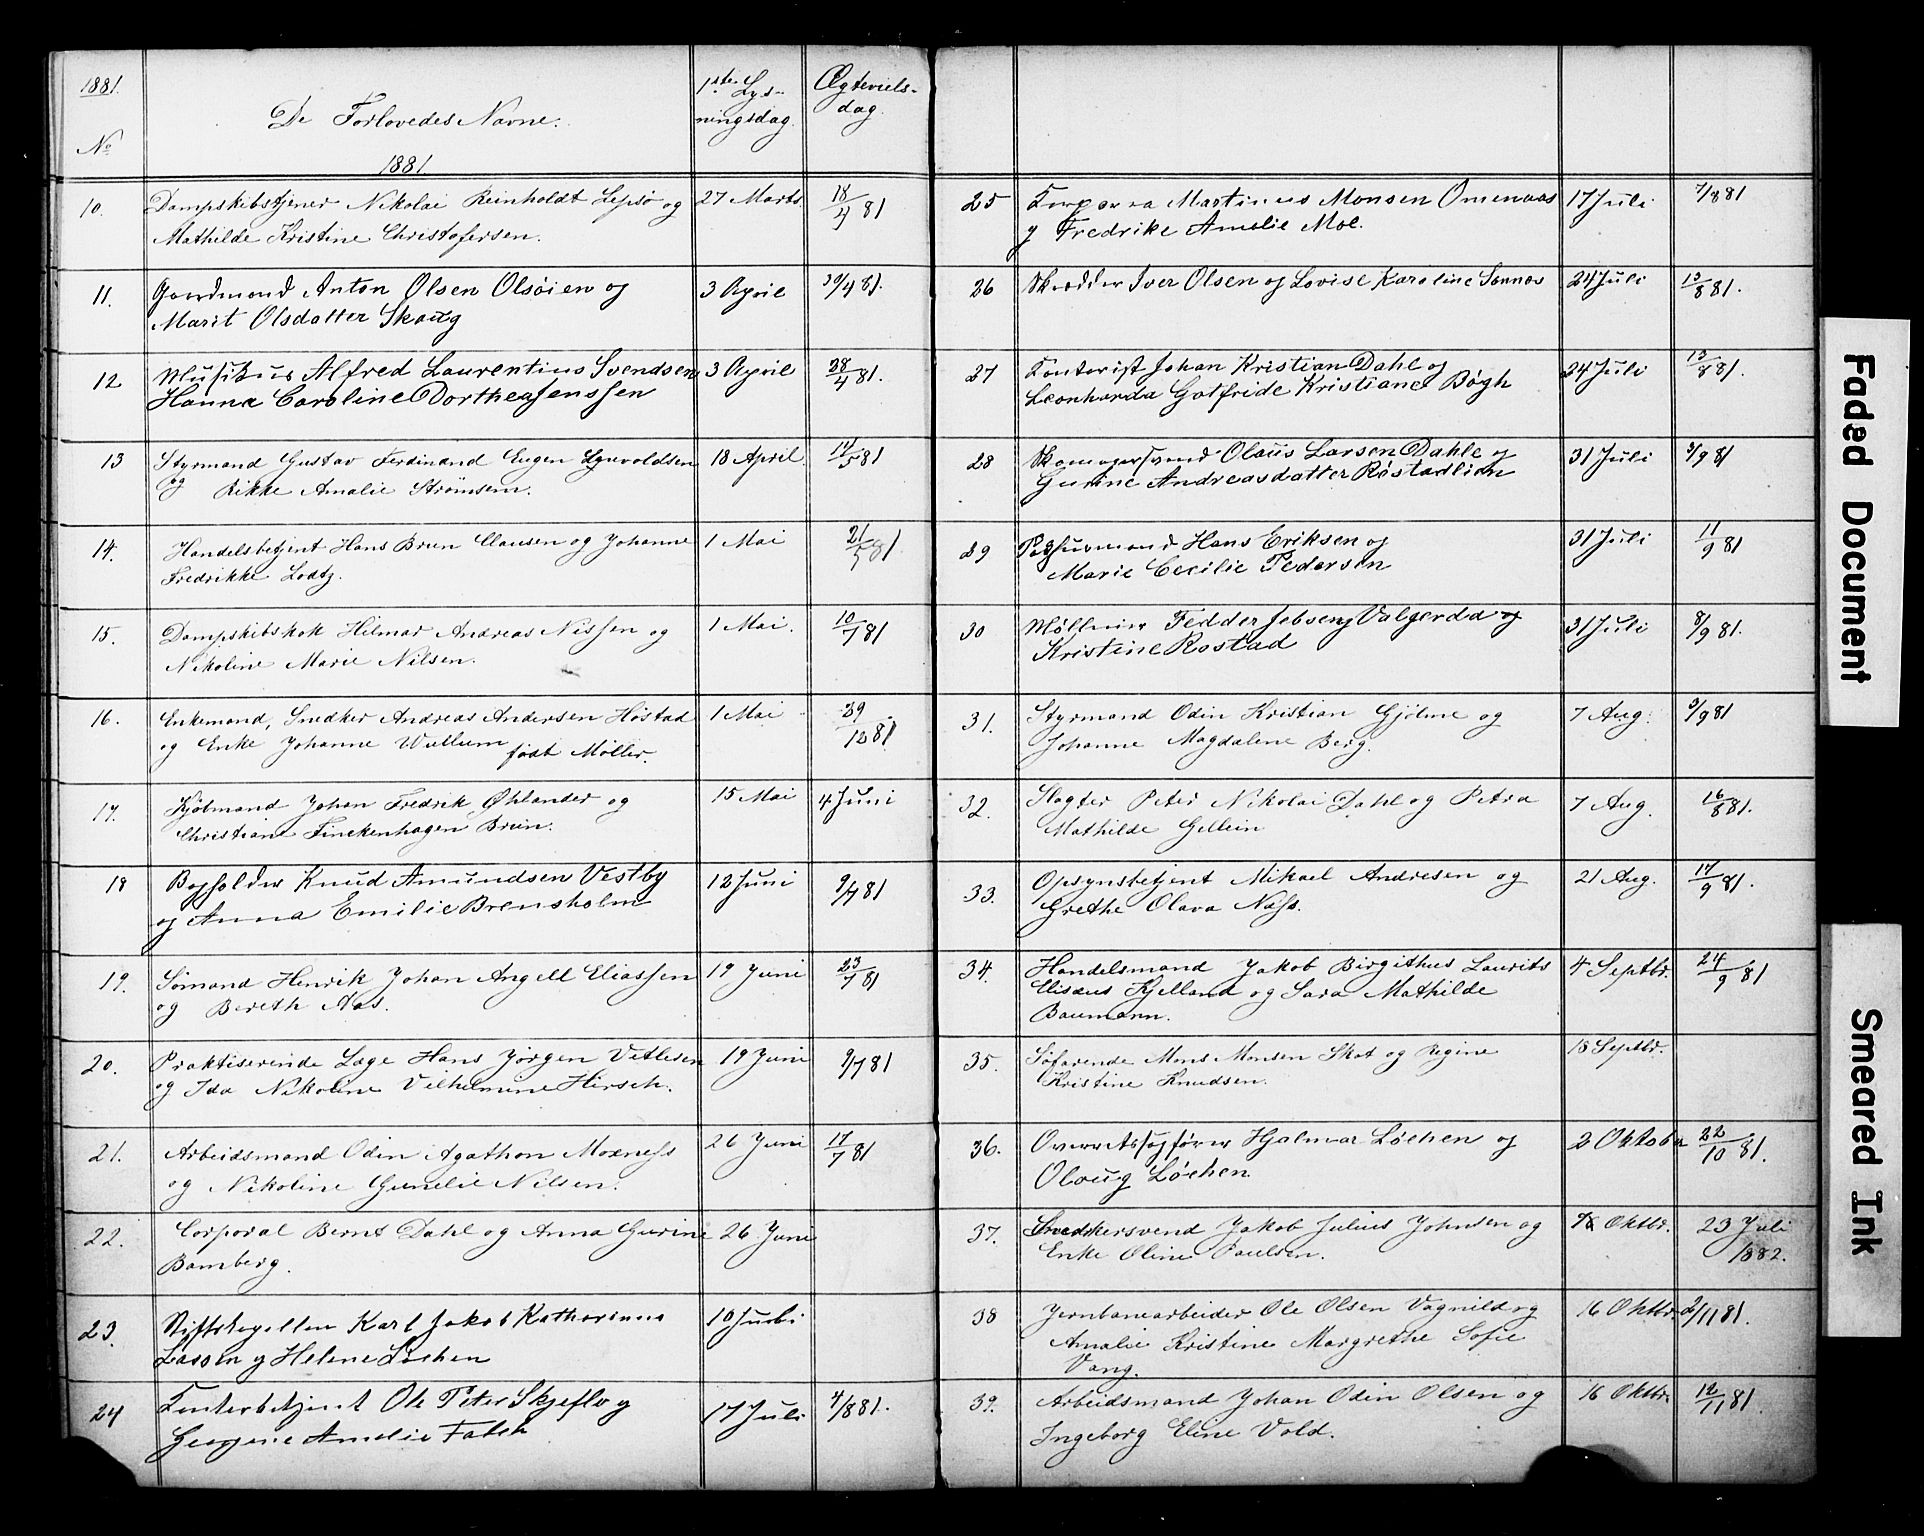 1881.
No
De Forlovedes Navne.
1ste Lys-
ningsdag.
Ægteviels-
dag.
1881
10. Dampskibstjener Nikolai Reinholdt Lepsö og 27 Marts 18/4 81
Mathilde Kristine Christofersen.
11. Gaardmand Anton Olsen Olsöien og 3 April 30/4 81.
Marit Olsdatter Skaug
12 Musikus Alfred Laurentius Svendsen 3 April 28/4 81.
Hanna Caroline Dorthea Jenssen
13 Styrmand Gustav Ferdinand Eugen 18 April 14/5 81
og Rikke Amalie Strömsem.
14. Handelsbetjent Hans Brun Clausen og Johanne 1 Mai 21/5 81.
Fredrikke Lodtz.
15. Dampskibskok Hilmar Andreas Nissen og 1 Mai. 10/7 81
Nikoline Marie Nilsen.
16. Enkemand, Snedker Andreas Andersen Höstad 1 Mai 29/12 81.
og Enke Johanne Wullum födt Möller.
17. Kjöbmand Johan Fredrik Öhlander og 15 Mai 4 Juni
Christiane Finckenhagen Brun.
18 Bogholder Knud Amundsen Vestby 12 Juni 9/7 81
og Anna Emilie Brensholm
19. Sömand Henrik Johan Angell Eliassen 19 Juni 23/7 81
og Bereth Aas.
20. Praktiserende Læge Hans Jörgen Vetlesen 19 Juni 9/7 81
og Ida Nikoline Vilhelmine Hirsch.
21. Arbeidsmand Odin Agathon Moxness 26 Juni 17/7 81
og Nikoline Gunelie Nilsen.
22. Corporal Bernt Dahl og Anna Gurine 26 Juni
Bamberg.
23. Karl Jakob Katharinus 10 Juli
Lassen og Helene Löchen
24 Kontorbetjent Ole Peter Skjeflo og 17 Juli 4/8 81.
Georgine Amalie Fatch
25 Martinus Monsen Omenaas 17 Juli 7/8 81
og Fredrike Amalie Moe.
26 Skrædder Iver Olsen og Lovise Karoline Sannes 24 Juli 13/8 81.
27 Kontorist Johan Kristian Dahl og 24 Juli 13/8 81.
Leonharda Gotfride Kristiane Bögh
28 Skomagersvend Olaus Larsen Dahle og 31 Juli 3/9 81
Gurine Andreasdatter Röstadlien
29 Hans Eriksen og 31 Juli 11/9 81
Marie Cecilie Pedersen
30 Möllener Fedder Jebsen Valgerda og 31 Juli 8/9 81.
Kristine Rostad
31. Styrmand Odin Kristian Gjölme og 7 Aug. 3/9 81
Johanne Magdalene Berg.
32. Slagter Peter Nikolai Dahl og Petra 7 Aug. 16/8 81.
Mathilde Gellein
33. Opsynsbetjent Mikael Andresen og 21 Aug. 17/9 81.
Grethe Olava Næss.
34. Handelsmand Jakob Birgithus Laurits 4 Septbr. 24/9 81
Elisæus Kjelland og Sara Mathilde
Baumann.
35. Söfarende Mons Monsen Skot og Regine 18 Septbr.
Kristine Knudsen.
36. Overretssagförer Hjalmar Löchen og 2 Oktober 22/10 81.
Olaug Löchen
37. Snedkersvend Jakob Julius Johnsen og Oktbr. 23 Juli
Enke Oline Paulsen. 1882.
38 Jernbanearbeider Ole Olsen Vognild og 16 Oktbr. 2/11 81.
Amalie Kristine Margrethe Sofie
Vang.
39. Arbeidsmand Johan Odin Olsen og 16 Oktbr. 12/11 81
Ingeborg Eline Vold.
Faded Document
Smeared Ink